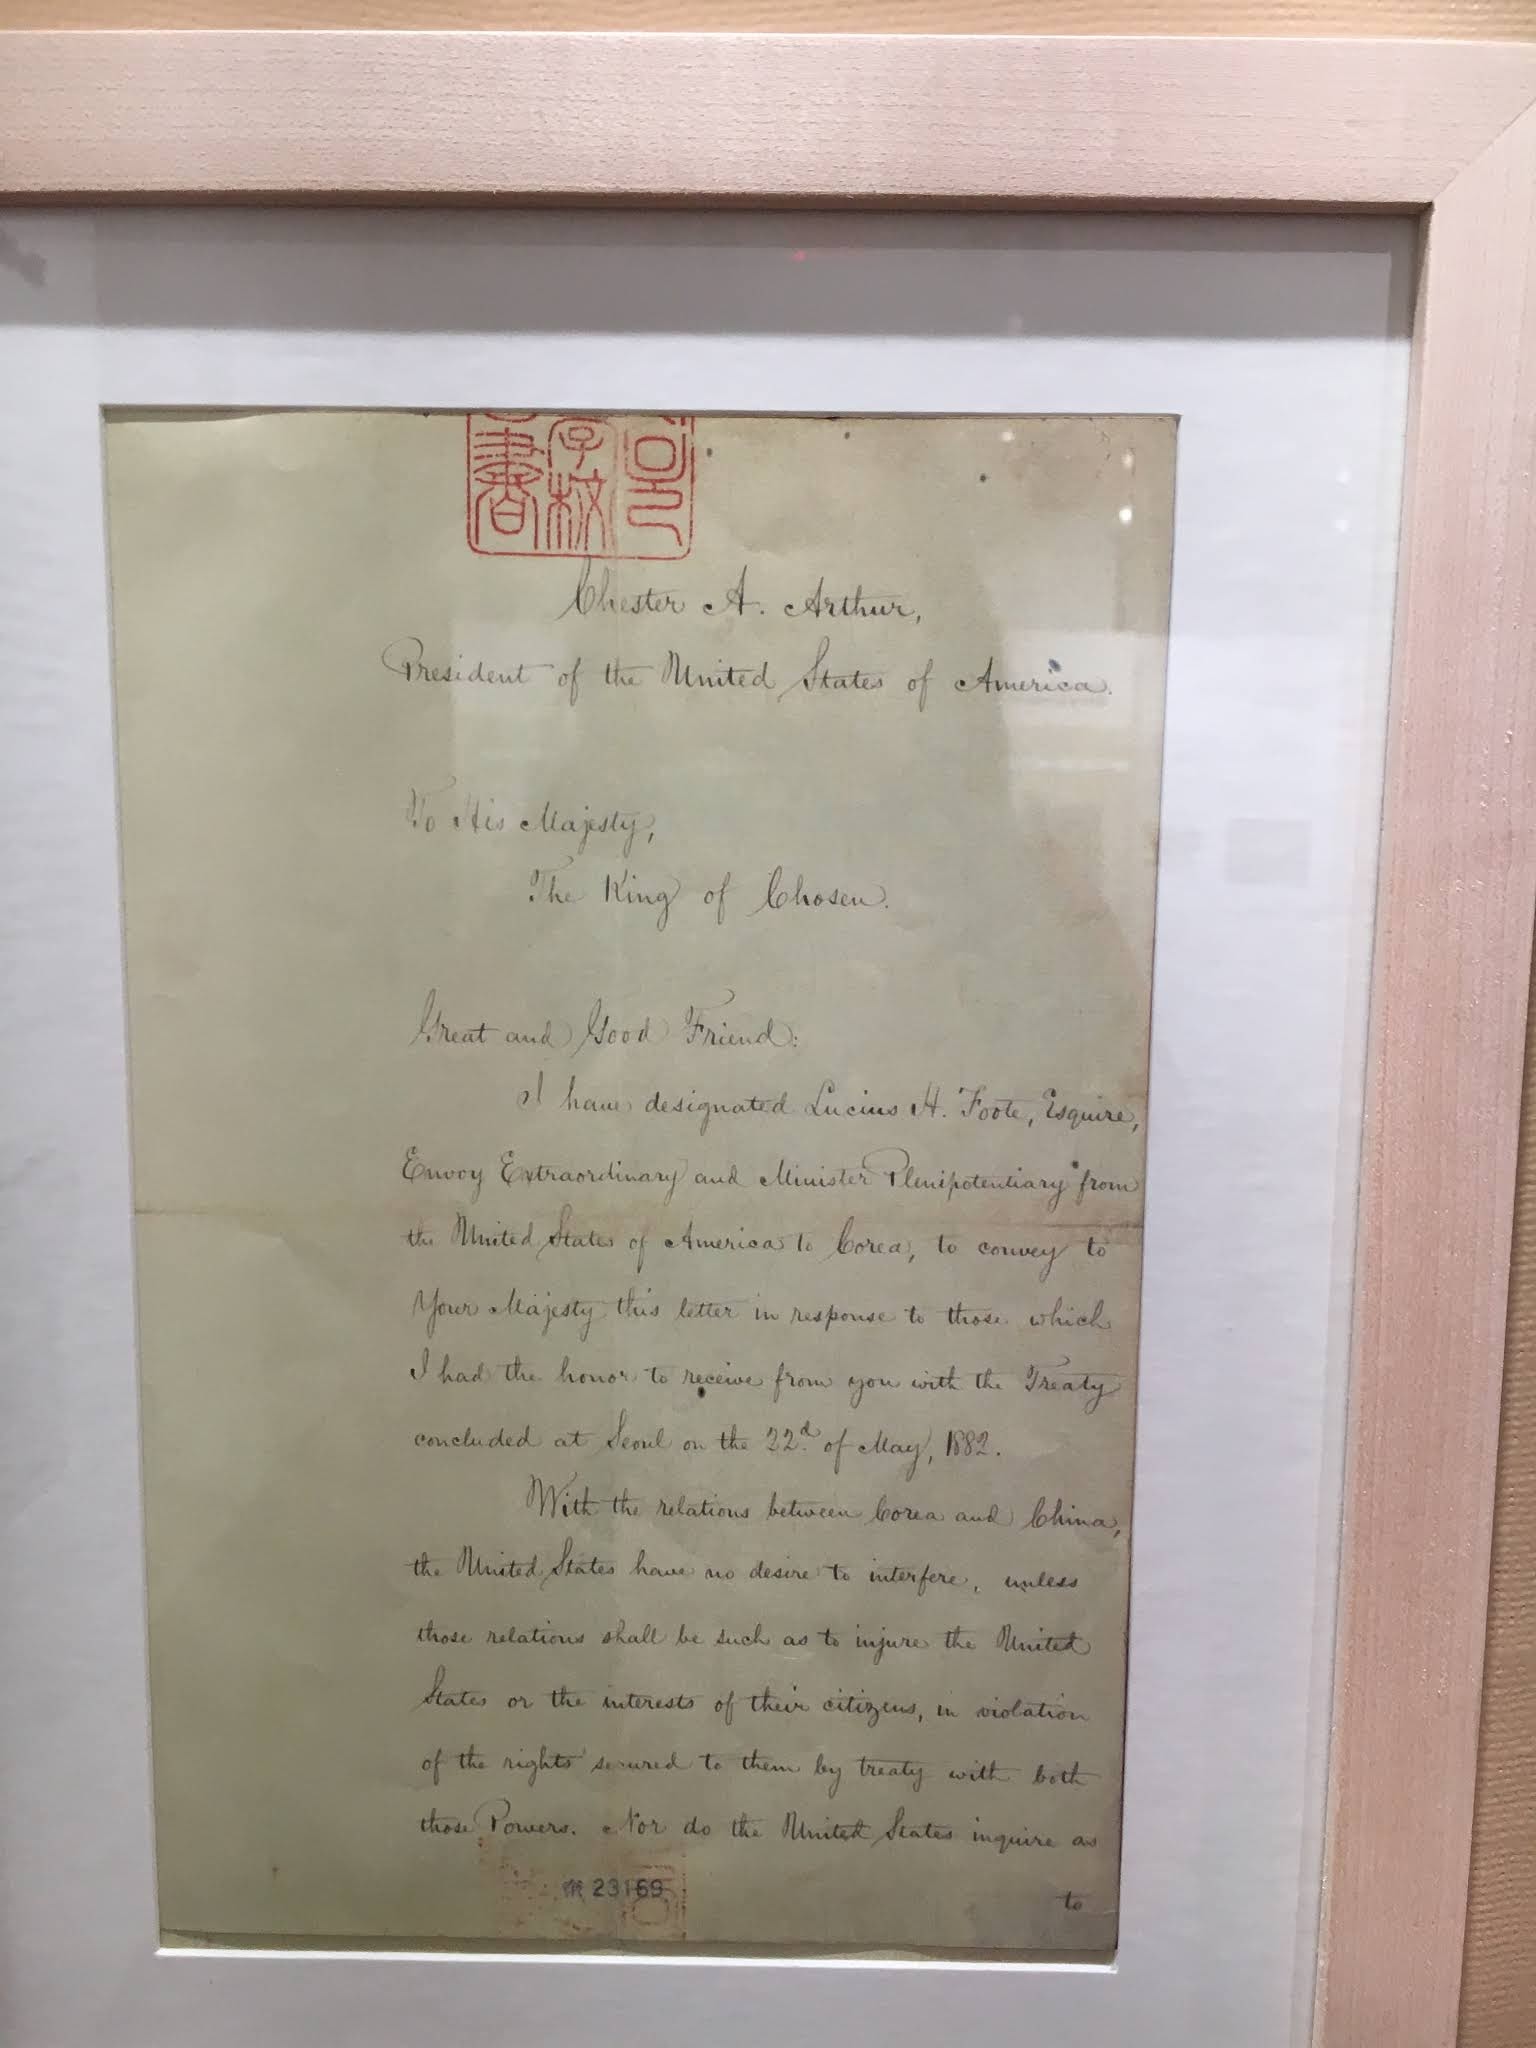 書 学校
Chester A. Arthur,
President of the United States of America.
To His Majesty,
The King of Chosen.
Great and Good Friend:
I have designated Lucius H. Foote, Esquire,
Envoy Extraordinary and Minister Plenipotentiary from
the United States of America to Corea, to convey to
Your Majesty this letter in response to those which
I had the honor to receive from you with the Treaty
concluded at Seoul on the 22d. of May, 1882.
With the relations between Corea and China,
the United States have no desire to interfere, unless
those relations shall be such as to injure the United
States or the interests of their citizens, in violation
of the rights secured to them by treaty with both
those Powers. Nor do the United States inquire as
23169
to